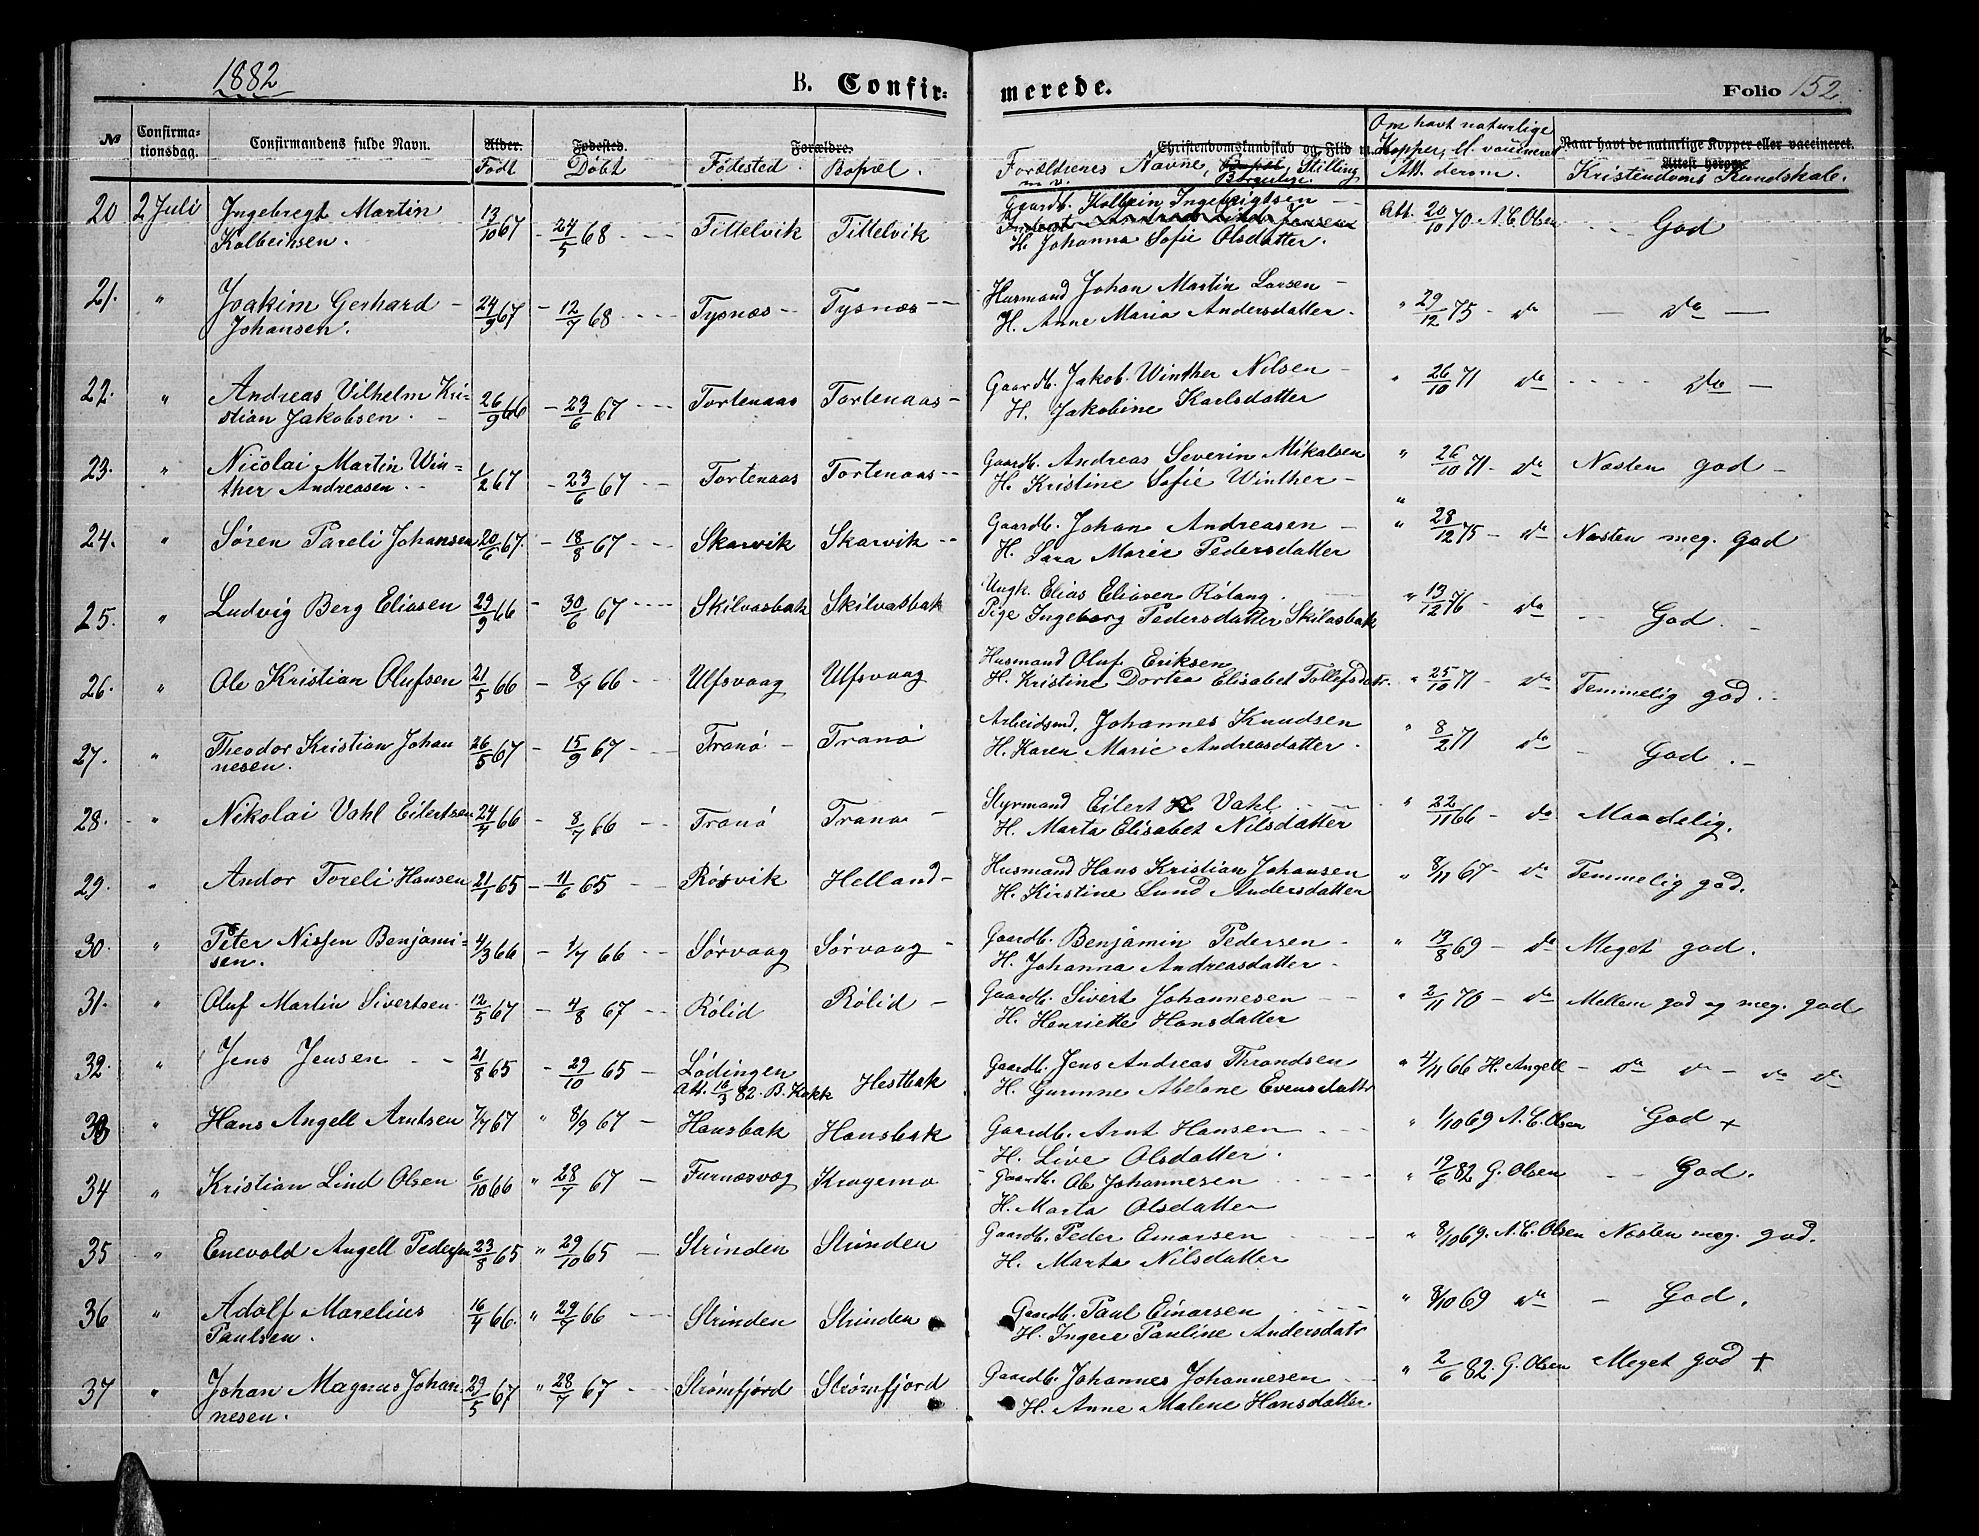 1882
B. Confirmerede.
Folio 152.
№ Confirmationsdag. Confirmandens fulde Navn. Alder. Født Fødested. Døbt Forældre. Fødested Bopæl.
Christendomskundskab og Flid Forældrenes Navne, Bopæl, Stilling m.v. Borgerlige Om havt naturlige Kopper, el. vaccineret Att. derom. Naar havt de naturlige Kopper eller vaccineret. Attest herom Kristendoms Kundskab.
20 2 Juli Ingebregt Martin 13/10 67 24/5 68 Tittelvik Tittelvik Gaardb. Kolbein Ingebrigtsen Att. 20/10 70. A. C. Olsen God
Kolbeinsen. H. Johanna Sofie Olsdatter.
21. " Joakim Gerhard 24/9 67 12/7 68 Tysnæs Tysnæs Husmand Johan Martin Larsen " 29/12 75 do do
Johansen. H. Anne Maria Andersdatter.
22. " Andreas Vilhelm Kri- 26/9 66 23/6 67 Tortenaas Tortenaas Gaardb. Jakob Winther Nilsen " 26/10 71 do do
stian Jakobsen. H. Jakobine Karlsdatter
23. " Nicolai Martin Win- 1/2 67 23/6 67 Tortenaas Tortenaas Gaardb. Andreas Severin Mikalsen " 26/10 71 do Næsten god
ther Andreasen. H. Kristine Sofie Winther
24. " Søren Pareli Johansen 20/6 67. 18/8 67 Skarvik Skarvik Gaardb. Johan Andreasen " 28/12 75 do Næsten meg. god
H. Sara Marie Pedersdatter
25. " Ludvig Berg Eliasen 29/9 66 30/6 67 Skilvasbak Skilvasbak Ungk. Elias Eliasen Rølang. " 13/12 76 do God.
Pige Ingeborg Pedersdatter Skilvasbak
26. " Ole Kristian Olufsen 21/5 66 8/7 66 Ulfsvaag Ulfsvaag Husmand Oluf Eriksen " 25/10 71 do Temmelig god.
H. Kristine Dortea Elisabet Tollefsdatr.
27. " Theodor Kristian Johan 26/5 67 15/9 67 Tranø Tranø Arbeidsmd. Johannes Knudsen " 8/2 71 do God.
nesen. H. Karen Marie Andreasdatter.
28. " Nikolai Vahl Eilertsen 24/4 66 8/7 66 Tranø Tranø Styrmand Eilert Vahl " 22/11 66 do Maadelig.
H. Marta Elisabet Nilsdatter
29. " Andor Toreli Hansen 21/4 65 11/6 65 Røsvik Helland Husmand Hans Kristian Johansen " 8/11 67 do Temmelig god.
H. Kirstine Lund Andersdatter
30. " Peter Nissen Benjami- 4/3 66 1/7 66 Sørvaag Sørvaag Gaardb. Benjamin Pedersen " 13/8 69 do Meget god.
sen. H. Johanna Andreasdatter
31. " Oluf Martin Sivertsen 12/5 67 4/8 67 Rølid Rølid Gaardb. Sivert Johannesen " 2/11 70 do Mellem god og meg. god
H. Henriette Hansdatter
32. " Jens Jensen 21/8 65 29/10 65 Lødingen Hestbak Gaardb. Jens Andreas Throndsen " 4/11 66 H. Angell do do do do
Att. 16/3 82. B. Kokk H. Gurinne Abelone Evensdatr
33 " Hans Angell Arntsen 7/7 67 " 8/9 67 Hansbak Hansbak Gaardb. Arnt Hansen " 1/10 69 A. C. Olsen God +
H. Live Olsdatter.
34 " Kristian Lind Olsen 6/10 66 " 28/7 67 Furnæsvæg Kragemo Gaardb. Ole Johannesen " 19/6 82 G. Olsen God.
H. Marta Olsdatter
35 " Enevold Angell Pedersen 23/8 65 " 29/10 65 Strinden Strinden Gaardb. Peder Einarsen " 8/10 69. A. C. Olsen Næsten meg. god.
H. Marta Nilsdatter
36 " Adolf Marelius 16/4 66. " 29/7 66 Strinden Strinden Gaardb. Paul Einarsen " 8/10 69 do God.
Paulsen. H. Ingere Pauline Andersdatr
37 " Johan Magnus Johan 29/5 67 " 28/7 67 Strømfjord Strømfjord Gaardb. Johannes Johannesen " 2/6 82. G. Olsen Meget god +
nesen. H. Anne Malene Hansdatter.